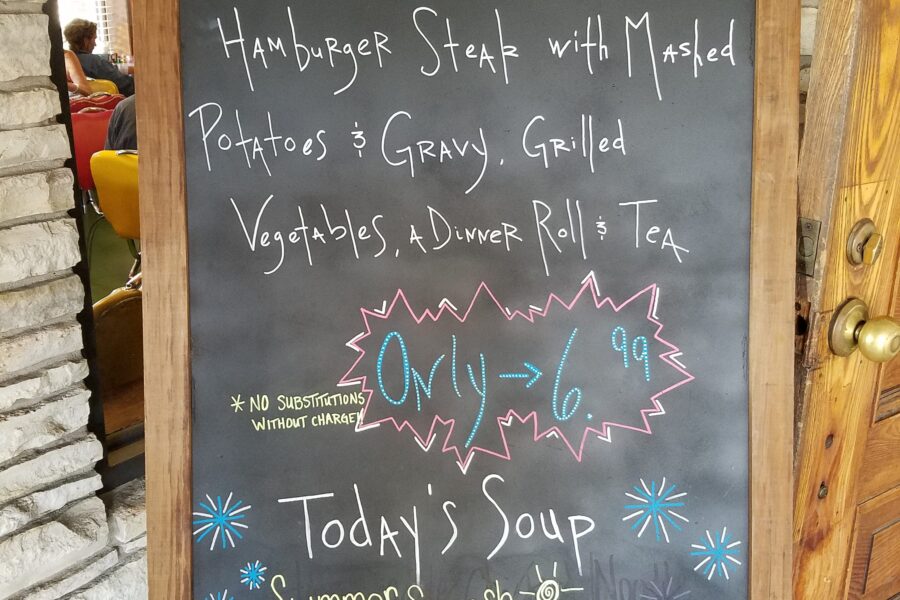 Hamburger Steak with Mashed
Potatoes & Gravy, Grilled
Vegetables, a Dinner Roll & Tea
Only → 6.99
* NO SUBSTITUTIONS
WITHOUT CHARGE
Today's Soup